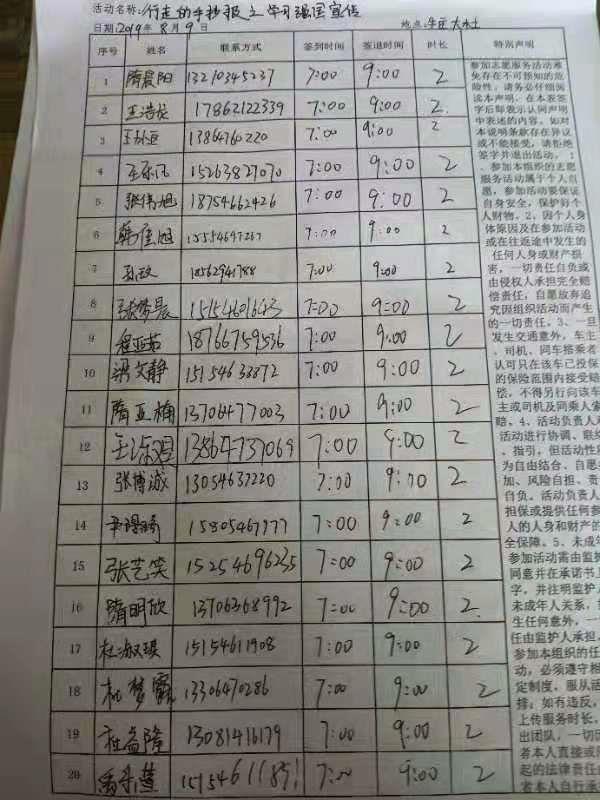 活动名称：行走的手抄报之学习强国宣传
日期 2019年8月9日 地点：
序号 姓名 联系方式 签到时间 签退时间 时长 特别声明
1 隋晨阳 13210345237 7:00 9:00 2
2 王浩龙 17862122339 7:00 9:00 2
3 13864760220 7:00 9:00 2
4 15263827070 7:00 9:00 2
5 张伟旭 18754662426 7:00 9:00 2
6 韩佳旭 15554697267 7:00 9:00 2
7 18562941788 7:00 9:00 2
8 张梦晨 15154601643 7:00 9:00 2
9 程亚茹 18766759536 7:00 9:00 2
10 梁文静 15154633872 7:00 9:00 2
11 隋亚楠 13706477003 7:00 9:00 2
12 13864737069 7:00 9:00 2
13 张博诚 13054637220 7:00 9:00 2
14 15805467777 7:00 9:00 2
15 张艺笑 15254696235 7:00 9:00 2
16 隋明欣 13706368992 7:00 9:00 2
17 杜淑琪 15154611908 7:00 9:00 2
18 杜梦霸 13306470286 7:00 9:00 2
19 杜益隆 13081416179 7:00 9:00 2
20 7:00 9:00 2
参加志愿服务活动难
免存在不可预知的危
险性，请务必仔细阅
读本声明，在本表签
字后即表示认同声明
中表述的内容。如对
本说明条款存在异议
或不能接受，请拒绝
签字并退出活动。1
、参加本组织的志愿
服务活动属于个人自
愿，参加活动要保证
自身安全，保护好个
人财物。2、因个人身
体原因及在参加活动
或在往返途中发生的
任何人身或财产损
害，一切责任自负或
由侵权人承担完全赔
偿责任，自愿放弃追
究因组织活动而产生
的一切责任。3、一旦
发生交通意外，车主
、司机、同车搭乘者
认可只在该车已投保
的保险范围内接受赔
偿，不得另行向该车
主或司机及同乘人索
赔。4、活动负责人对
活动进行协调、联络
、指引，但活动性质
为自由结合、自愿参
加、风险自担、责任
自负。活动负责人不
担保或提供任何参加
人的人身和财产的安
全保障。5、未成年人
参加活动需由监护人
同意并在承诺书上签
字，并注明监护人与
未成年人关系，
生任何意外，一
任由监护人承担，
参加本组织的任
动，必须遵守相
定制度，服从活
排；如有违反，
上传服务时长，
出团队，一切因
者本人直接或
起的法律责任由
者本人自行承